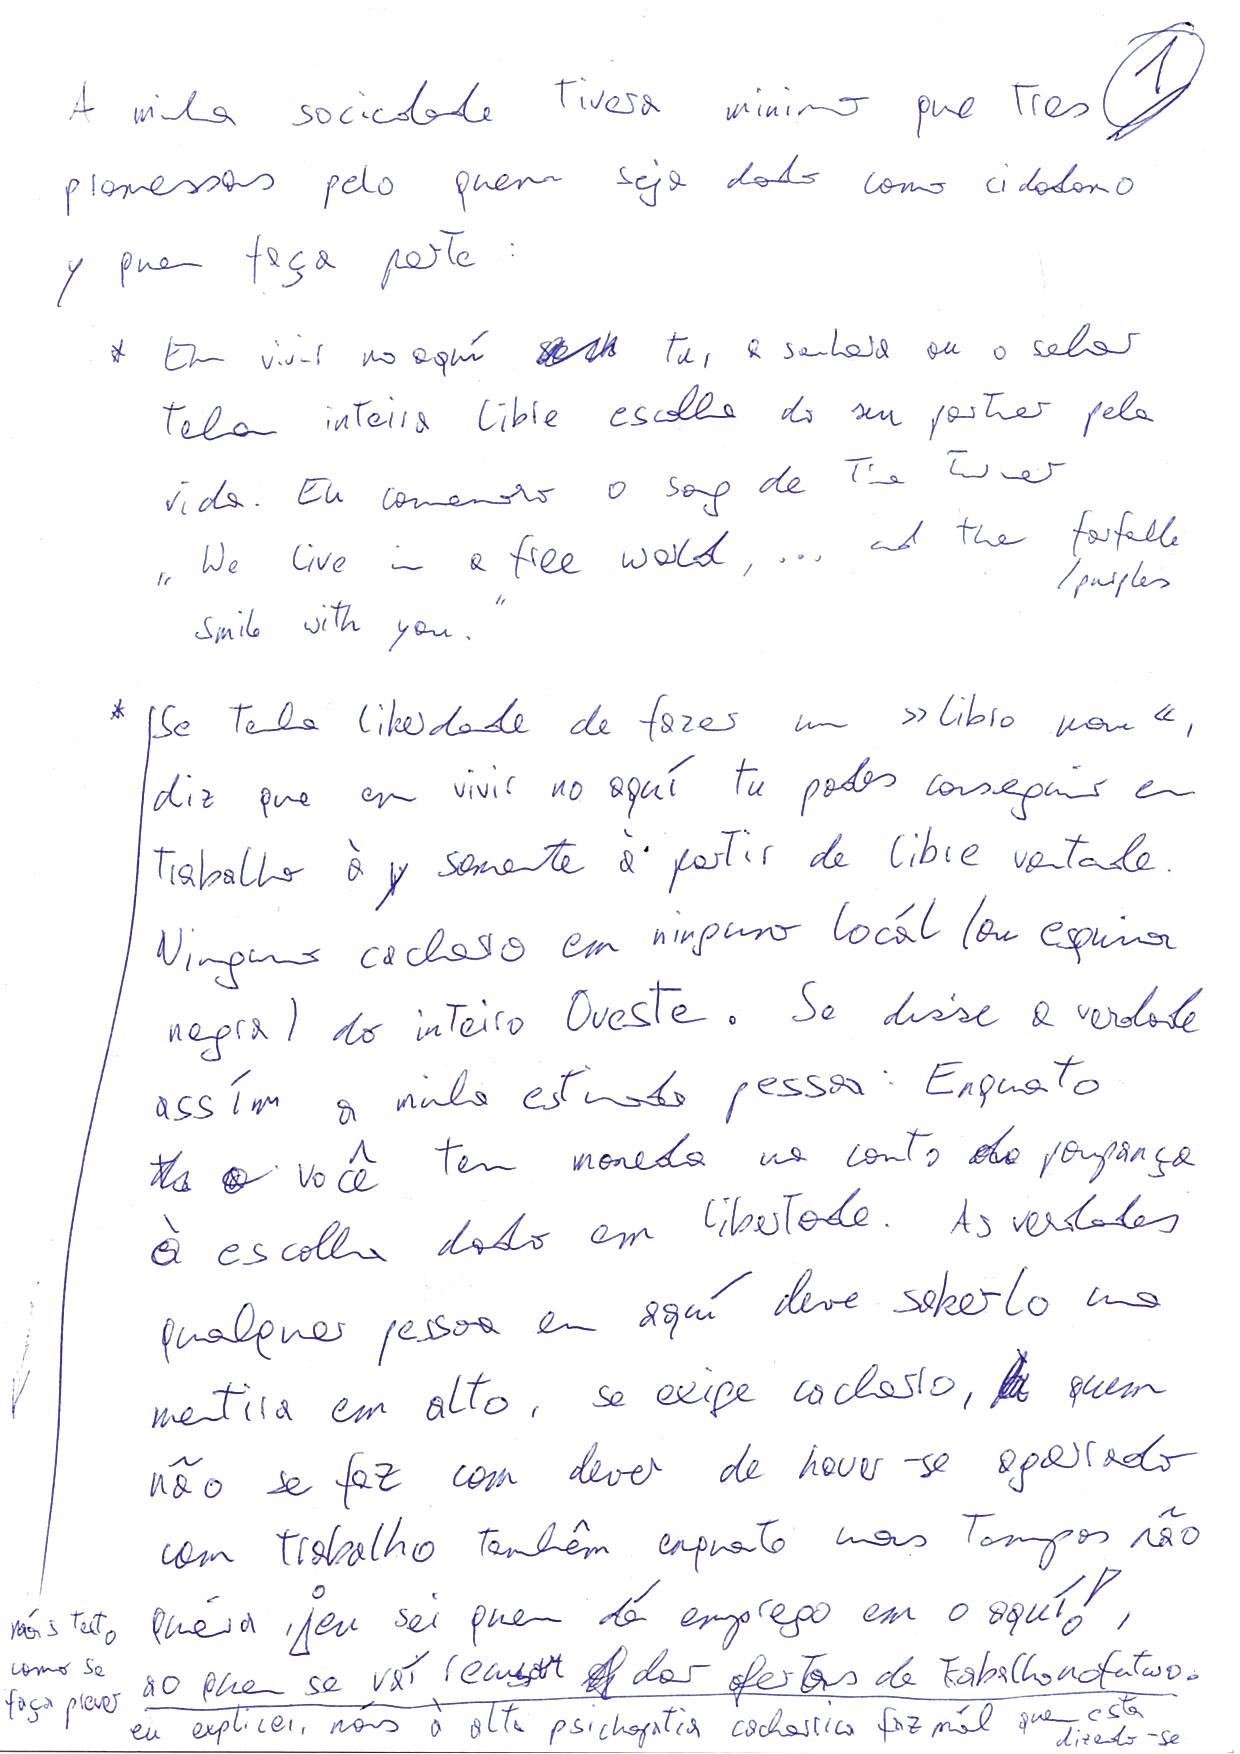 1
A minha sociedade tivera minimo que tres
promessas pelo quem seja dado como cidadano
y quem faça parte:
* Em vivir no aquí tu, a senhora ou o sehor
tenha inteira libre escolha do seu partner pela
vida. Eu comemoro o song de Tina Turner
„We live in a free world, ... and the farfalle
/purples
smile with you."
* Se tenha liberdade de fazer um »libro nom«,
diz que em vivir no aquí tu podes conseguir em
trabalho à y somente à partir de libre vontade.
Ninguno cachorro em ninguno locál (ou esquina
negra) do inteiro Oveste. Se disse a verdade
assím a minha estimada pessoa: Enquato
você tem moneda na conto do poupança
à escolha dado em libertade. As verdades
qualquer pessoa em aquí deve saberlo uma
mentira em alto, se exige cachorro, quem
não se faz com dever de haver-se agarrado
com trabalho tambêm enquato mas tampos não
quéira, ¡eu sei quem dá emprego em o aquí!,
ao quem se vái dar ofertas de trabalho no futuro.
máis texto
como se
faça prever
eu expliceí, máis à alta psichopatia cachorrica faz mál quem esta
dizendo-se